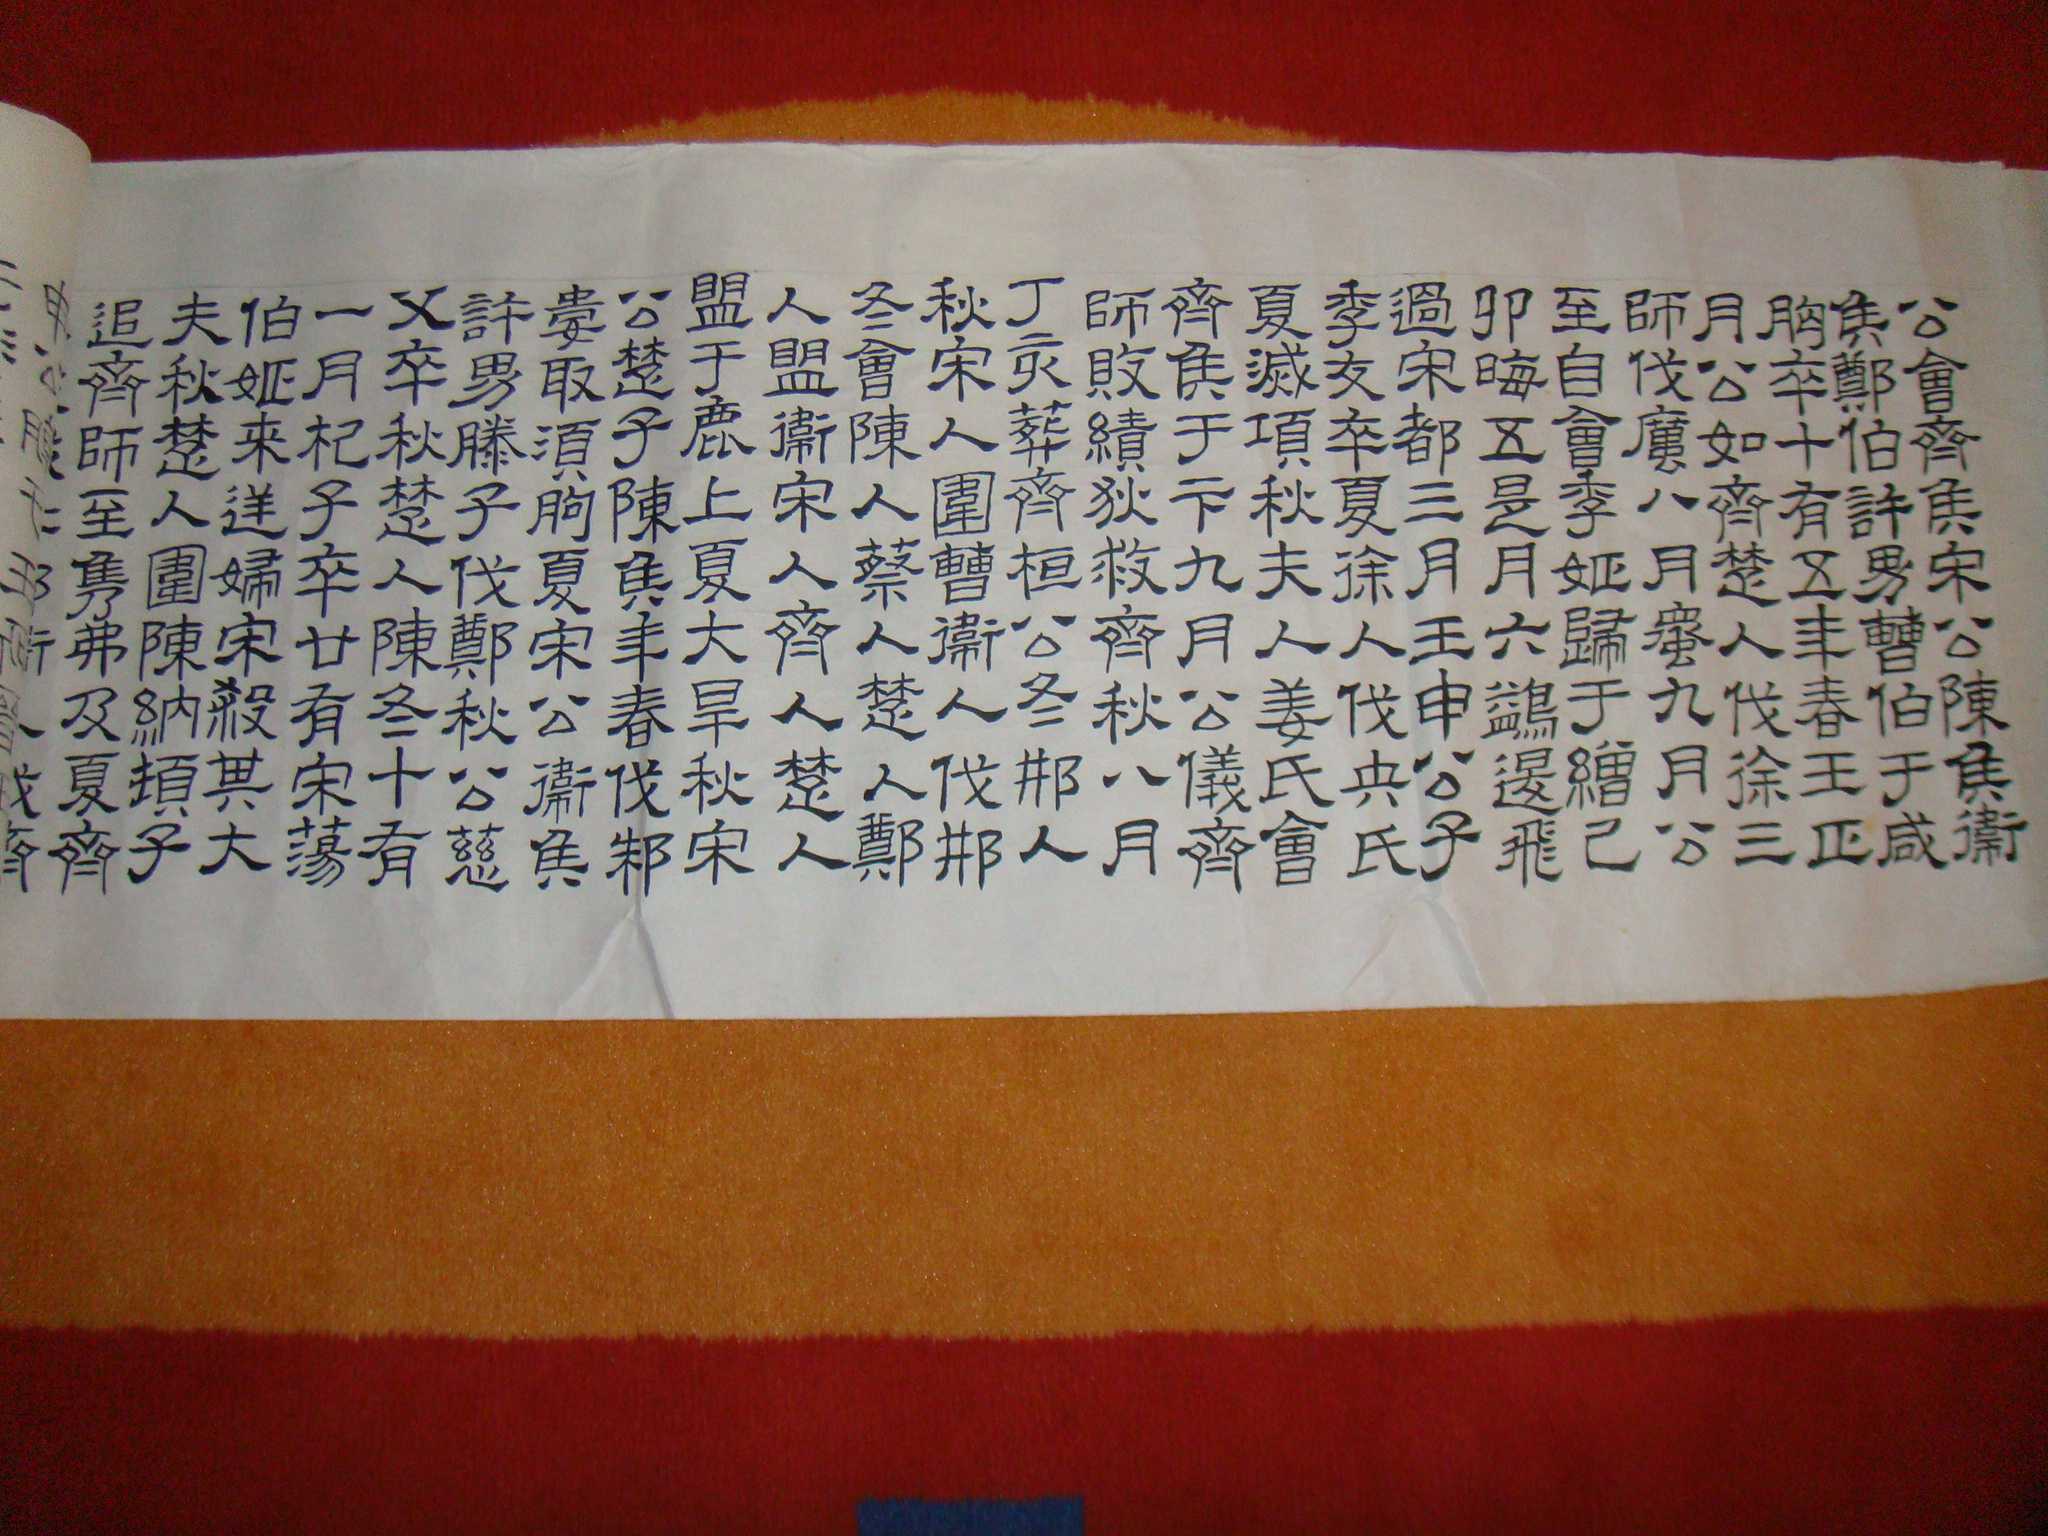 公會齊侯宋公陳侯衛
侯鄭伯許男曹伯于咸
朐卒十有五年春王正
月公如齊楚人伐徐三
師伐厲八月螽九月公
至自會季姬歸于繒己
卯晦五是月六鷁退飛
過宋都三月壬申公子
季友卒夏徐人伐英氏
夏滅項秋夫人姜氏會
齊侯于卞九月公儀齊
師敗績狄救齊秋八月
丁亥葬齊桓公冬邢人
秋宋人圍曹衛人伐邢
冬會陳人蔡人楚人鄭
人盟衛宋人齊人楚人
盟于鹿上夏大旱秋宋
公楚子陳侯年春伐邾
婁取須朐夏宋公衛侯
許男滕子伐鄭秋公慈
父卒秋楚人陳冬十有
一月杞子卒廿有宋蕩
伯姬来逆婦宋殺其大
夫秋楚人圍陳納頓子
追齊師至巂弗及夏齊